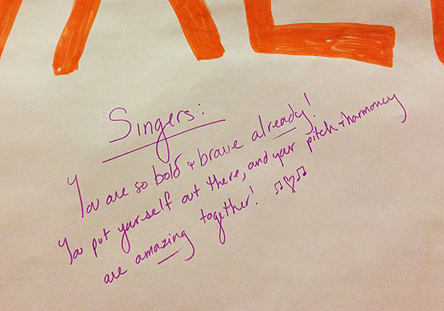 Singers:
You are so bold & brave already!
You put yourself out there, and your pitch + harmoney
are amazing together! ♫♡♫